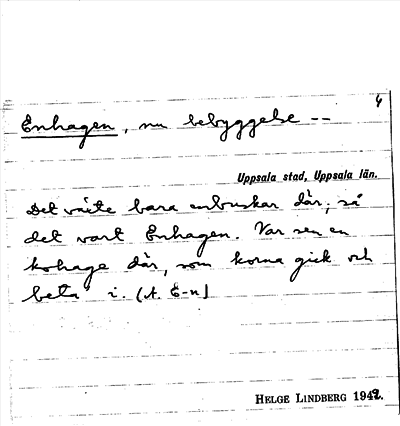 4
Enhagen, nu bebyggelse --
Uppsala stad, Uppsala län.
Det växte bara enbuskar där, så
det vart Enhagen. Var sen en
kohage där, som korna gick och
beta i. (A. E-n)
HELGE LINDBERG 1942.